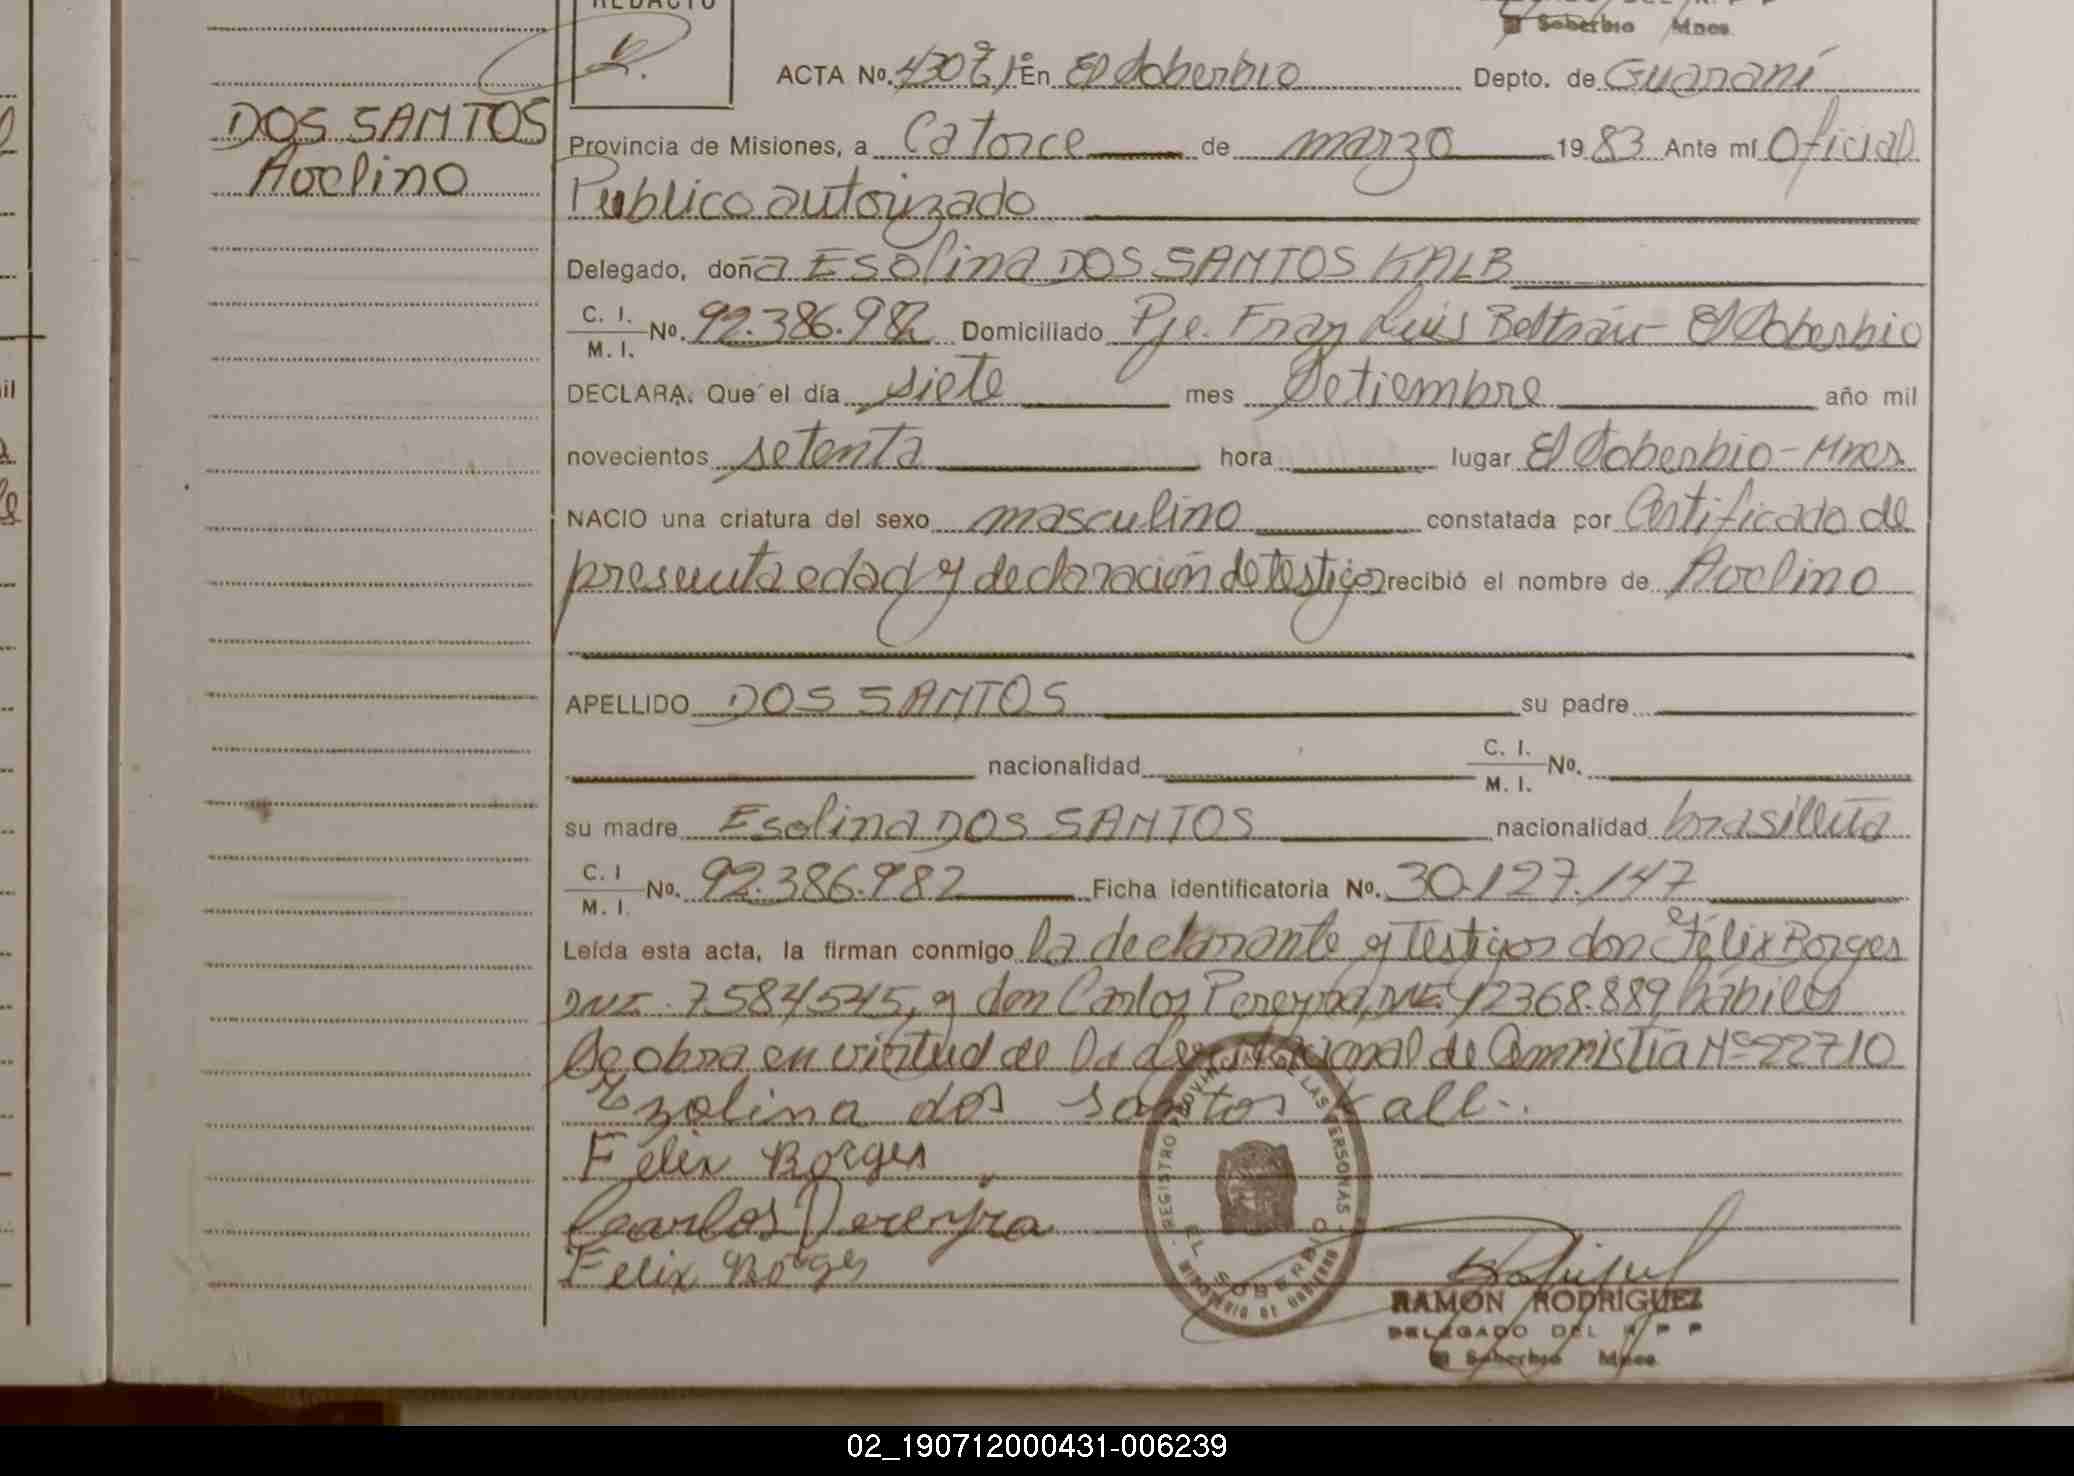 REDACTO
El Soberbio Mnes.
ACTA Nº. 430 En El Soberbio Depto. de Guaraní
DOS SANTOS
Avelino
Provincia de Misiones, a Catorce de marzo 1983 Ante mí Oficial
Publico autorizado
Delegado, doña Esolina DOS SANTOS KALB
C. I.
M. I. Nº. 92.386.982 Domiciliado Pje. Fray Luis Beltrán - El Soberbio
DECLARA. Que el día siete mes Setiembre año mil
novecientos setenta hora lugar El Soberbio - Mnes.
NACIO una criatura del sexo masculino constatada por Certificado de
presunta edad y declaración de testigos recibió el nombre de Avelino
APELLIDO DOS SANTOS su padre
nacionalidad C. I.
M. I. Nº.
su madre Esolina DOS SANTOS nacionalidad brasileña
C. I
M. I. Nº. 92.386.982 Ficha identificatoria Nº. 30.127.147
Leída esta acta, la firman conmigo la declarante y testigos don Félix Borges
DNI. 7584545, y don Carlos Pereyra, DNI. 12368.889, hábiles
Se obra en virtud de la Ley Nacional de Amnistía Nº 22710
Ezolina dos Santos Kall.
Felix Borges
Carlos Pereyra
Felix Borges
REGISTRO PROVINCIAL DE LAS PERSONAS
EL SOBERBIO
MINISTERIO DE GOBIERNO
RAMON RODRIGUEZ
DELEGADO DEL R P P
El Soberbio Mnes.
02_190712000431-006239